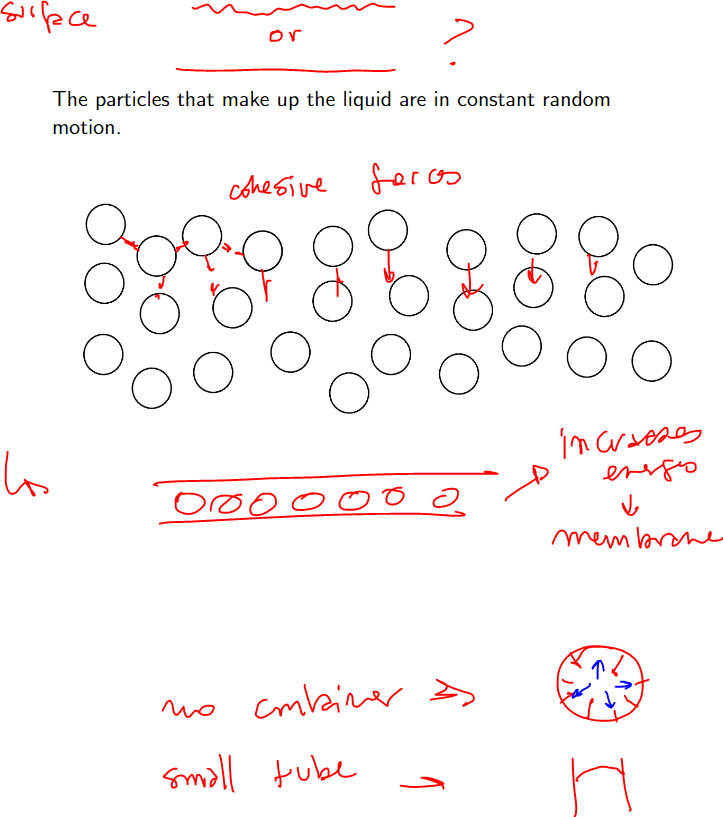 surface
or
?
The particles that make up the liquid are in constant random
motion.
cohesive forces
increases
energy
membrane
no container
small tube